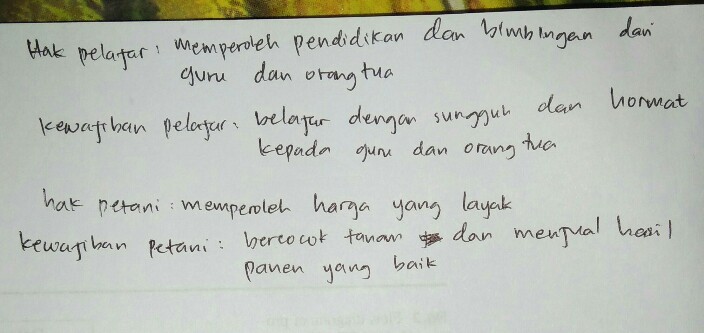 Hak pelajar : memperoleh pendidikan dan bimbingan dari
guru dan orang tua
kewajiban pelajar : belajar dengan sungguh dan hormat
kepada guru dan orang tua
hak petani : memperoleh harga yang layak
kewajiban petani : bercocok tanam dan menjual hasil
panen yang baik